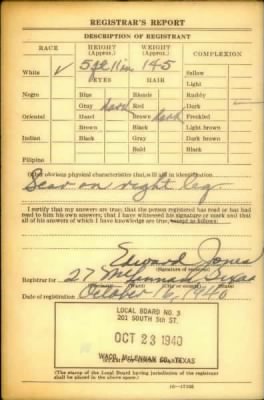 REGISTRAR'S REPORT
DESCRIPTION OF REGISTRANT
RACE HEIGHT (Approx.) WEIGHT (Approx.) COMPLEXION
White ✓ 5 ft 11 in 145 Sallow
EYES HAIR Light
Negro Blue Blonde Ruddy
Gray dark Red Dark
Oriental Hazel Brown dark Freckled
Brown Black Light brown
Indian Black Gray Dark brown
Bald Black
Filipino
Other obvious physical characteristics that will aid in identification
Scar on right leg
I certify that my answers are true; that the person registered has read or has had
read to him his own answers; that I have witnessed his signature or mark and that
all of his answers of which I have knowledge are true, except as follows:
Edward Jones
(Signature of registrar)
Registrar for 27 McLennan Texas
Date of registration October 16, 1940
LOCAL BOARD NO. 3
201 SOUTH 5th ST.
OCT 23 1940
WACO, McLENNAN CO., TEXAS
(The stamp of the Local Board having jurisdiction of the registrant
shall be placed in the above space.)